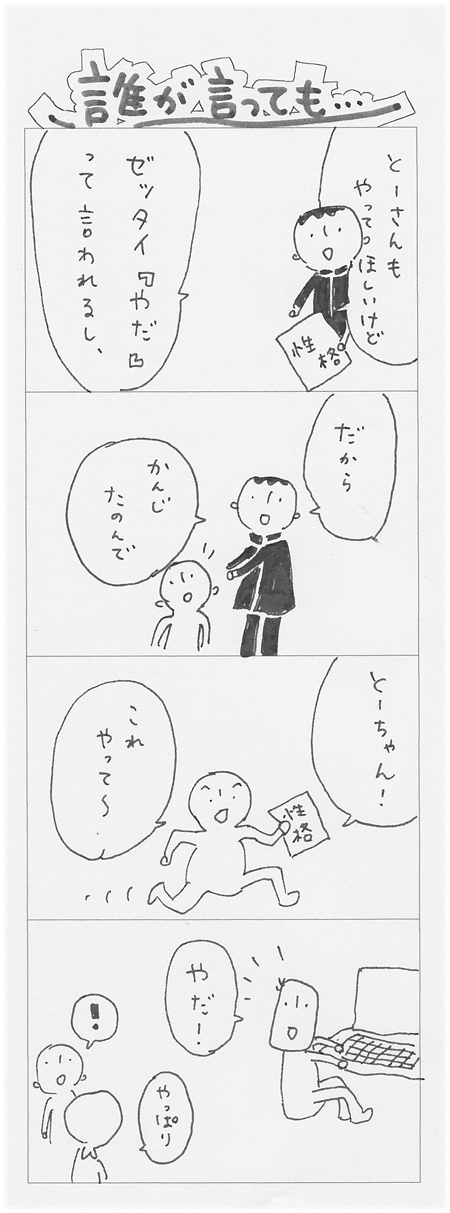 誰が言っても…
とーさんも
やってほしいけど
性格
ゼッタイ『やだ』
って言われるし、
だから
かんじ
たのんで
とーちゃん!
これ
やって〜
性格
やだ!
!
やっぱり